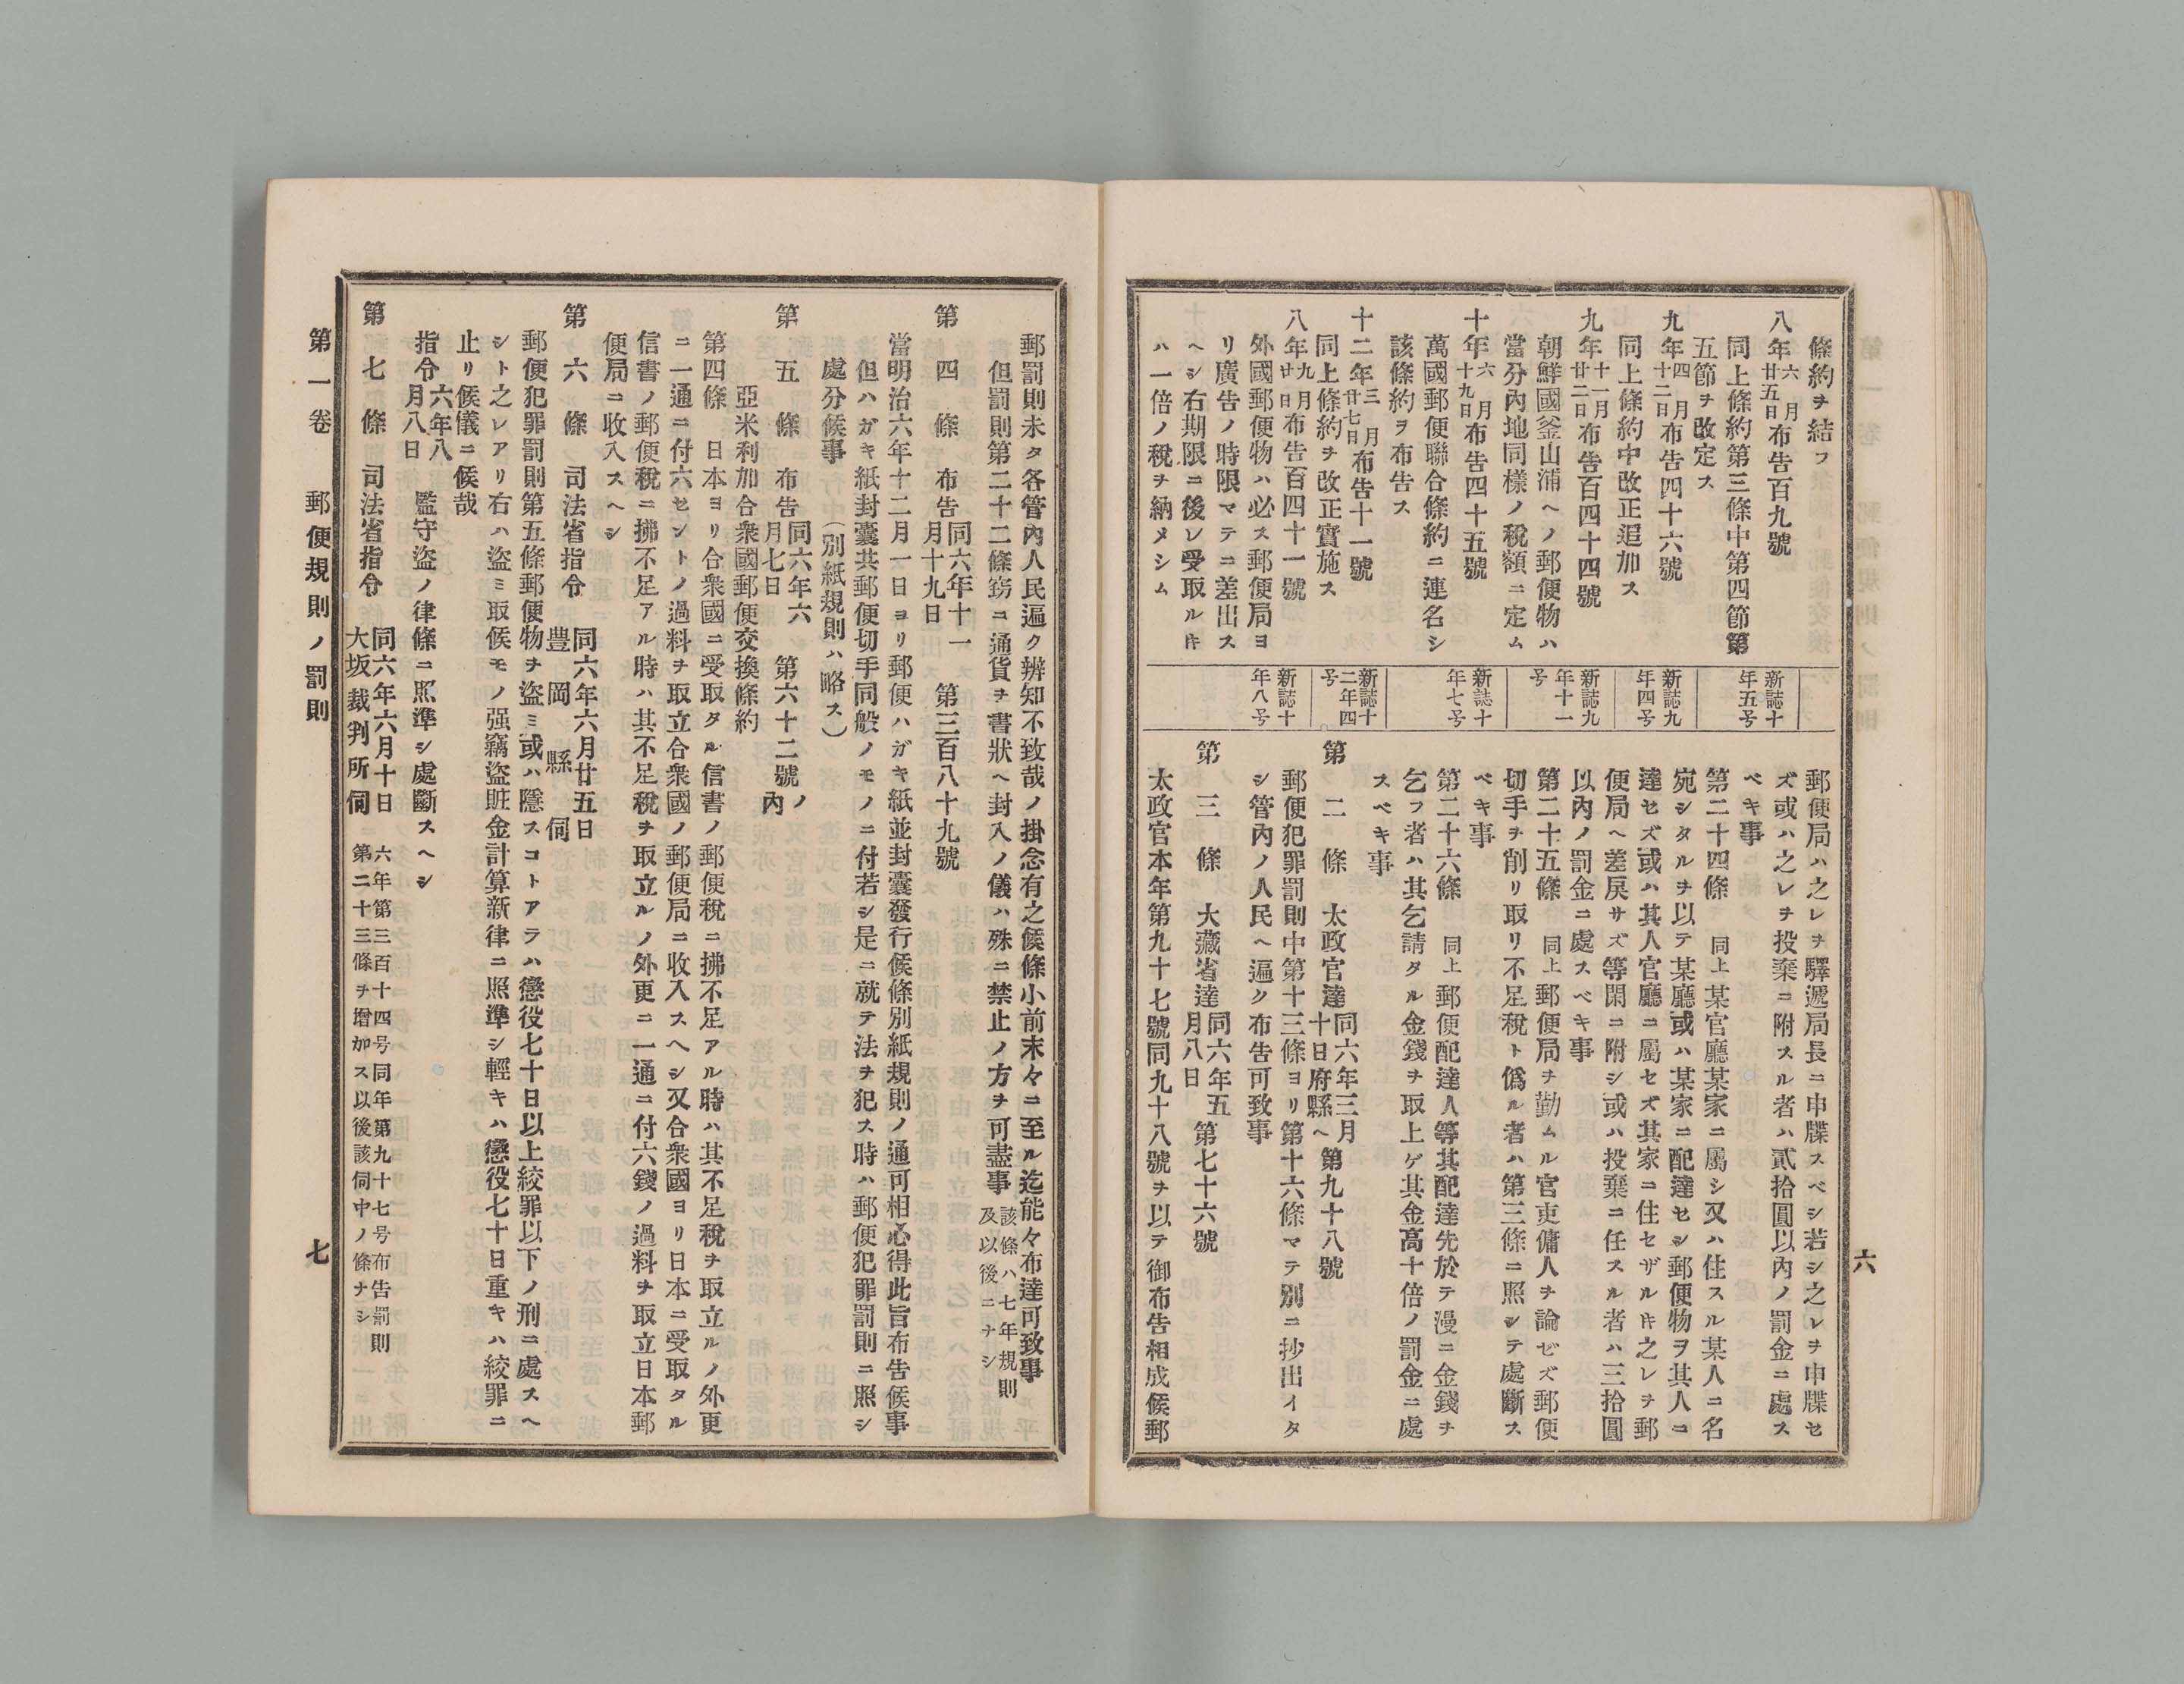 六
條約ヲ結フ
八年六月廿五日布告百九號
同上條約第三條中第四節第
五節ヲ改定ス
九年四月十二日布告四十六號
同上條約中改正追加ス
九年十一月廿二日布告百四十四號
朝鮮國釜山浦ヘノ郵便物ハ
當分內地同樣ノ稅額ニ定ム
十年六月十九日布告四十五號
萬國郵便聯合條約ニ連名シ
該條約ヲ布告ス
十二年三月廿七日布告十一號
同上條約ヲ改正實施ス
八年九月廿日布告百四十一號
外國郵便物ハ必ス郵便局ヨ
リ廣告ノ時限マテニ差出ス
ヘシ右期限ニ後レ受取ルキ
ハ一倍ノ稅ヲ納メシム
新誌十年五号
新誌九年四号
新誌九年十一号
新誌十年七号
新誌十二年四号
新誌十年八号
郵便局ハ之レヲ驛遞局長ニ申牒スベシ若シ之レヲ申牒セ
ズ或ハ之レヲ投棄ニ附スル者ハ貳拾圓以內ノ罰金ニ處ス
ベキ事
第二十四條 同上某官廳某家ニ屬シ又ハ住スル某人ニ名
宛シタルヲ以テ某廳或ハ某家ニ配達セシ郵便物ヲ其人ニ
達セズ或ハ其人官廳ニ屬セズ其家ニ住セザルキ之レヲ郵
便局ヘ差戾サズ等閑ニ附シ或ハ投棄ニ任スル者ハ三拾圓
以內ノ罰金ニ處スベキ事
第二十五條 同上郵便局ヲ勤ムル官吏傭人ヲ論ゼズ郵便
切手ヲ削リ取リ不足稅ト僞ル者ハ第三條ニ照シテ處斷ス
ベキ事
第二十六條 同上郵便配達人等其配達先於テ漫ニ金錢ヲ
乞フ者ハ其乞請タル金錢ヲ取上ゲ其金高十倍ノ罰金ニ處
スベキ事
第二條 太政官達同六年三月十日府縣ヘ第九十八號
郵便犯罪罰則中第十三條ヨリ第十六條マテ別ニ抄出イタ
シ管內ノ人民ヘ遍ク布告可致事
第三條 大藏省達同六年五月八日第七十六號
太政官本年第九十七號同九十八號ヲ以テ御布告相成候郵
郵罰則未タ各管內人民遍ク辨知不致哉ノ掛念有之候條小前末々ニ至ル迄能々布達可致事
但罰則第二十二條窃ニ通貨ヲ書狀ヘ封入ノ儀ハ殊ニ禁止ノ方ヲ可盡事 該條ハ七年規則及以後ニナシ
第四條 布告同六年十一月十九日 第三百八十九號
當明治六年十二月一日ヨリ郵便ハガキ紙並封囊發行候條別紙規則ノ通可相心得此旨布告候事
但ハガキ紙封囊共郵便切手同般ノモノニ付若シ是ニ就テ法ヲ犯ス時ハ郵便犯罪罰則ニ照シ
處分候事 （別紙規則ハ略ス）
第五條 布告同六年六月七日 第六十二號ノ內
亞米利加合衆國郵便交換條約
第四條 日本ヨリ合衆國ニ受取タル信書ノ郵便稅ニ拂不足アル時ハ其不足稅ヲ取立ルノ外更
ニ一通ニ付六セントノ過料ヲ取立合衆國ノ郵便局ニ收入スヘシ又合衆國ヨリ日本ニ受取タル
信書ノ郵便稅ニ拂不足アル時ハ其不足稅ヲ取立ルノ外更ニ一通ニ付六錢ノ過料ヲ取立日本郵
便局ニ收入スヘシ
第六條 司法省指令 同六年六月廿五日豊岡縣伺
郵便犯罪罰則第五條郵便物ヲ盜ミ或ハ隱スコトアラハ懲役七十日以上絞罪以下ノ刑ニ處スヘ
シト之レアリ右ハ盜ミ取候モノ强竊盜贓金計算新律ニ照準シ輕キハ懲役七十日重キハ絞罪ニ
止リ候儀ニ候哉
指令六年八月八日 監守盜ノ律條ニ照準シ處斷スヘシ
第七條 司法省指令 同六年六月十日大坂裁判所伺 六年第三百十四号同年第九十七号布告罰則第二十三條ヲ增加ス以後該伺中ノ條ナシ
第一卷 郵便規則ノ罰則
七